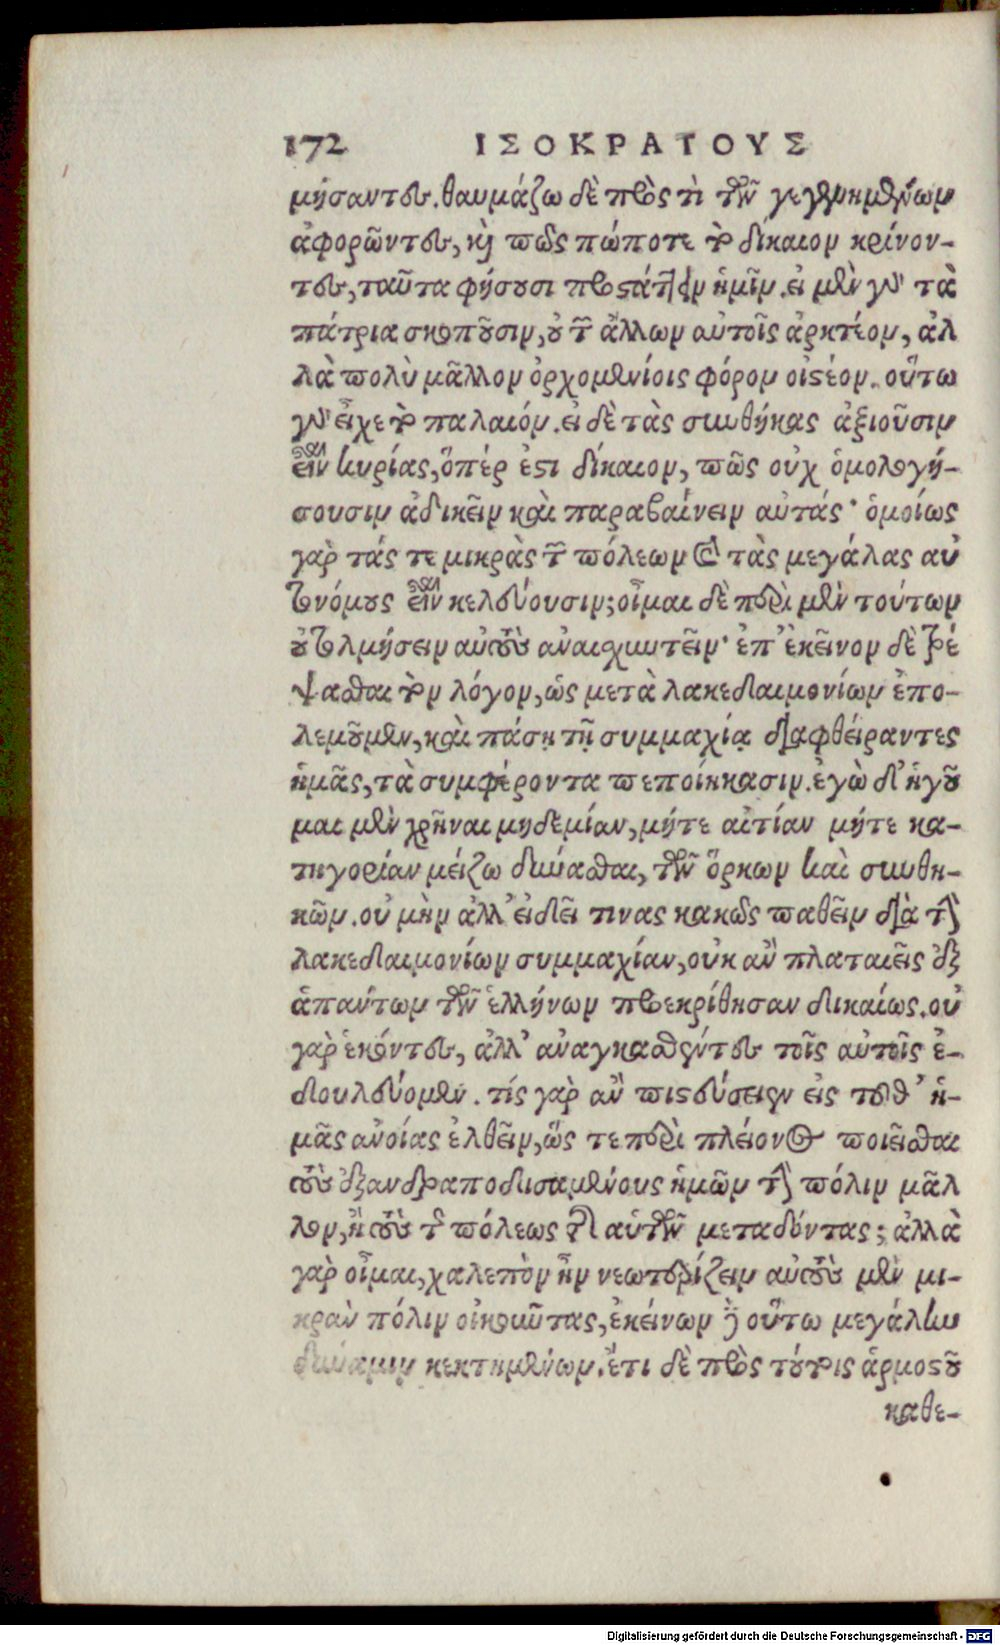 172 ΙΣΟΚΡΑΤΟΥΣ
μήσαντες. θαυμάζω δὲ πρὸς τὶ τῶν γεγενημένων
ἀφορῶντες, καὶ πῶς πώποτε τὸ δίκαιον κρίνον-
τες, ταῦτα φήσουσι προστάττειν ἡμῖν. εἰ μὲν γὰρ τὰ
πάτρια σκοποῦσιν, οὐ τῶν ἄλλων αὐτοῖς ἀρκτέον, ἀλ
λὰ πολὺ μᾶλλον ὀρχομενίοις φόρον οἰστέον. οὕτω
γὰρ εἶχε τὸ παλαιόν. εἰ δὲ τὰς συνθήκας ἀξιοῦσιν
εἶναι κυρίας, ὅπέρ ἐστι δίκαιον, πῶς οὐχ ὁμολογή-
σουσιν ἀδικεῖν καὶ παραβαίνειν αὐτάς· ὁμοίως
γὰρ τάς τε μικρὰς τῶν πόλεων καὶ τὰς μεγάλας αὐ
τονόμους εἶναι κελεύουσιν; οἶμαι δὲ περὶ μὲν τούτων
οὐ τολμήσειν αὐτοὺς ἀναισχυντεῖν· ἐπ' ἐκεῖνον δὲ τρέ
ψασθαι τὸν λόγον, ὡς μετὰ λακεδαιμονίων ἐπο-
λεμοῦμεν, καὶ πάσῃ τῇ συμμαχίᾳ διαφθείραντες
ἡμᾶς, τὰ συμφέροντα πεποίηκασιν. ἐγὼ δ' ἡγοῦ
μαι μὲν χρῆναι μηδεμίαν, μήτε αἰτίαν μήτε κα-
τηγορίαν μείζω δύνασθαι, τῶν ὅρκων καὶ συνθη-
κῶν. οὐ μὴν ἀλλ' εἰ δεῖ τινας κακῶς παθεῖν διὰ τὴν
λακεδαιμονίων συμμαχίαν, οὐκ ἂν πλαταιεῖς ἐξ
ἁπάντων τῶν ἑλλήνων προεκρίθησαν δικαίως. οὐ
γὰρ ἑκόντες, ἀλλ' ἀναγκασθέντες τοῖς αὐτοῖς ἐ-
δουλεύομεν. τίς γὰρ ἂν πιστεύσειεν εἰς τοῦθ' ἡ-
μᾶς ἀνοίας ἐλθεῖν, ὥς τε περὶ πλείονος ποιεῖσθαι
τοὺς ἐξανδραποδισαμένους ἡμῶν τὴν πόλιν μᾶλ
λον, ἢ τοὺς τῆς πόλεως τῆς αὑτῶν μεταδόντας; ἀλλὰ
γὰρ οἶμαι, χαλεπὸν ἦν νεωτερίζειν αὐτοὺς μὲν μι-
κρὰν πόλιν οἰκοῦντας, ἐκείνων δὲ οὕτω μεγάλην
δύναμιν κεκτημένων. ἔτι δὲ πρὸς τούτοις ἁρμοστοῦ
καθε-
Digitalisierung gefördert durch die Deutsche Forschungsgemeinschaft - DFG